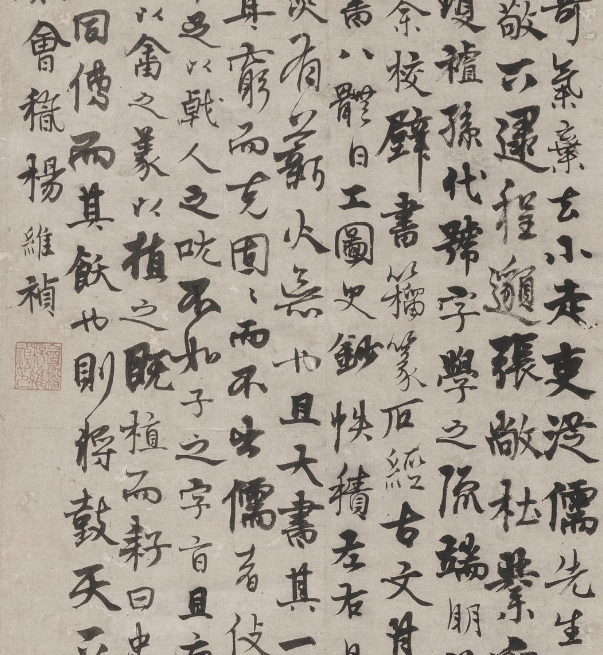 奇氣棄去小走吏從儒先生
敬下逮程邈張敞杜業
孫代號字學之端朋
余校壁書籀篆石經古文
書八體日工圖史鈔帙積左右
有薪火無也且大書其一
其窮而克固〻而不出儒者伎
足以戟人之吮不如子之字盲且
以畬之蓑以植之既植而耔曰
同傳而其飫也則將鼓天下
會稽楊維禎